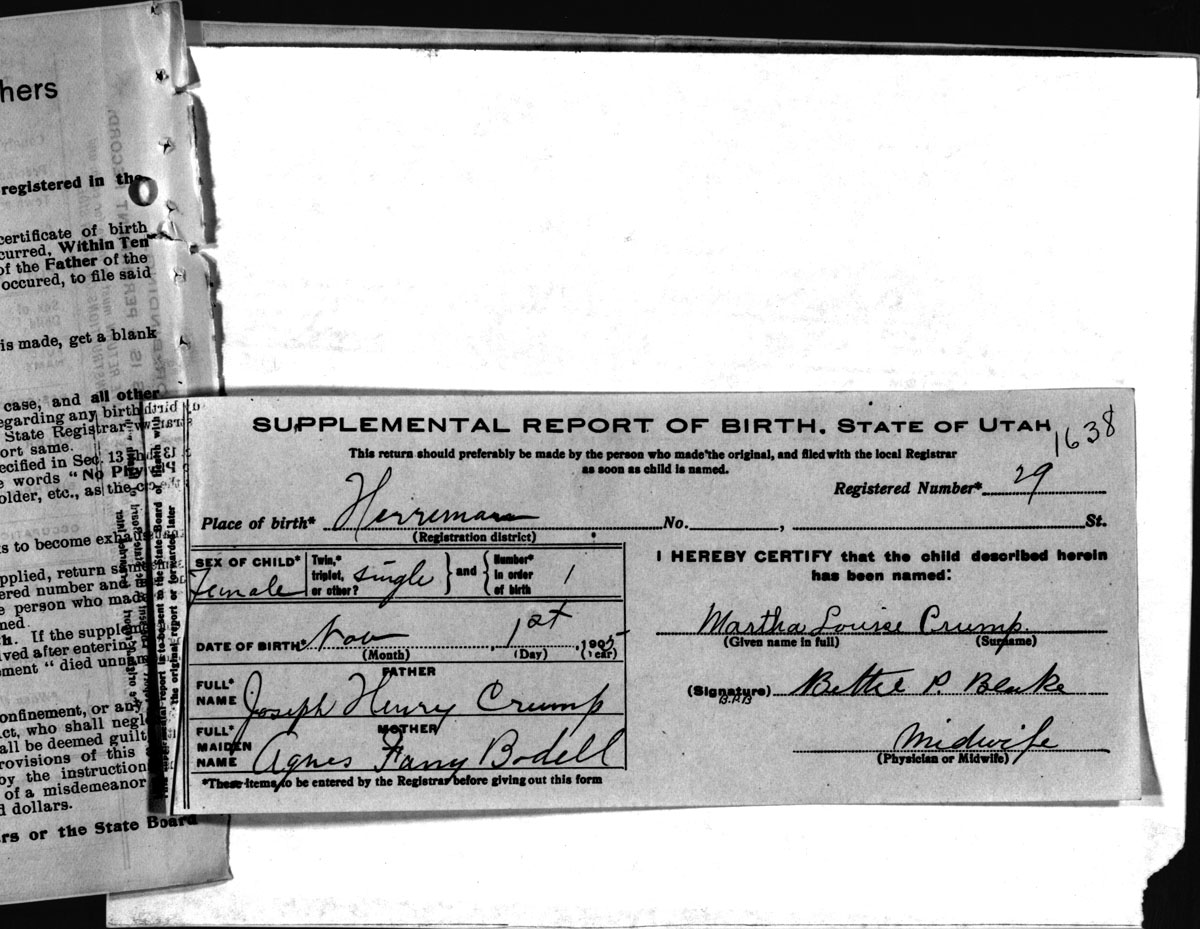 hers
registered in the
certificate of birth
curred, Within Ten
of the Father of the
occured, to file said
is made, get a blank
case, and all other
egarding any birth
State Registrar
ort same.
ecified in Sec. 13
e words "No Phy
older, etc., as the
s to become exha
pplied, return sam
ered number and
e person who mad
ned.
h. If the supplem
ived after entering
ment "died unnam
onfinement, or any
ct, who shall negl
all be deemed guilt
rovisions of this
by the instruction
of a misdemeanor
d dollars.
rs or the State Board
the original report or forwarded later
SUPPLEMENTAL REPORT OF BIRTH. STATE OF UTAH
1638
This return should preferably be made by the person who made the original, and filed with the local Registrar
as soon as child is named.
Registered Number* 29
Place of birth* Herreman No. , St.
(Registration district)
SEX OF CHILD* Female
Twin,* triplet, or other? single } and { Number* in order of birth 1
DATE OF BIRTH* Nov 1st, 1905
(Month) (Day) (Year)
FATHER
FULL* NAME Joseph Henry Crump
MOTHER
FULL* MAIDEN NAME Agnes Fanny Bodell
*These items to be entered by the Registrar before giving out this form
I HEREBY CERTIFY that the child described herein
has been named:
Martha Louise Crump.
(Given name in full) (Surname)
(Signature) Bettie P. Blake
B.P.B
Midwife
(Physician or Midwife)